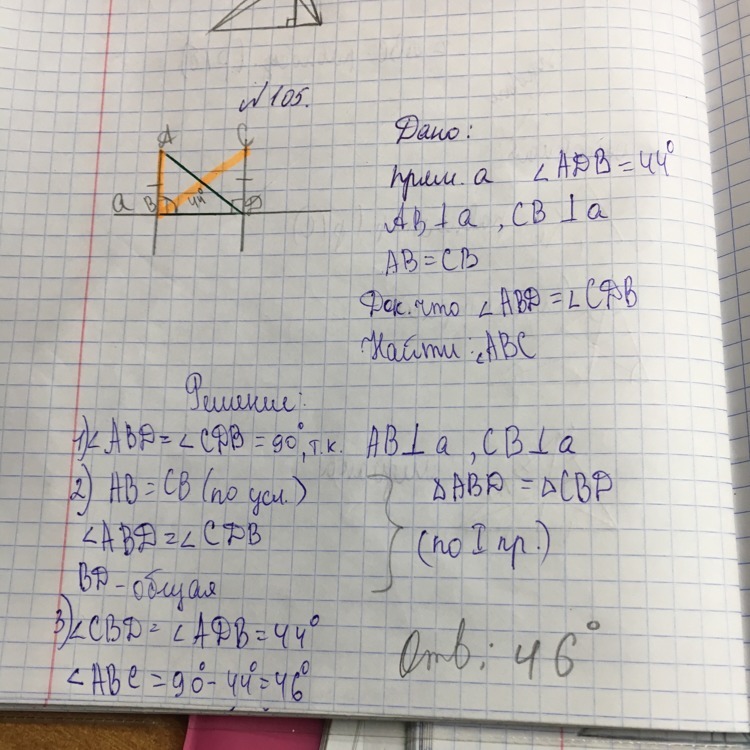 №105.
A C
a B D 44° D
Дано:
прям. a ∠ADB = 44°
AB⊥a , CB⊥a
AB = CB
Док. что ∠ABD = ∠CDB
Найти: ∠ABC
Решение:
1) ∠ABD = ∠CDB = 90°, т.к. AB⊥a , CB⊥a
2) AB = CB (по усл.) ΔABD = ΔCBD
∠ABD = ∠CDB (по I пр.)
BD - общая
3) ∠CBD = ∠ADB = 44°
∠ABC = 90° - 44° = 46°
Отв: 46°